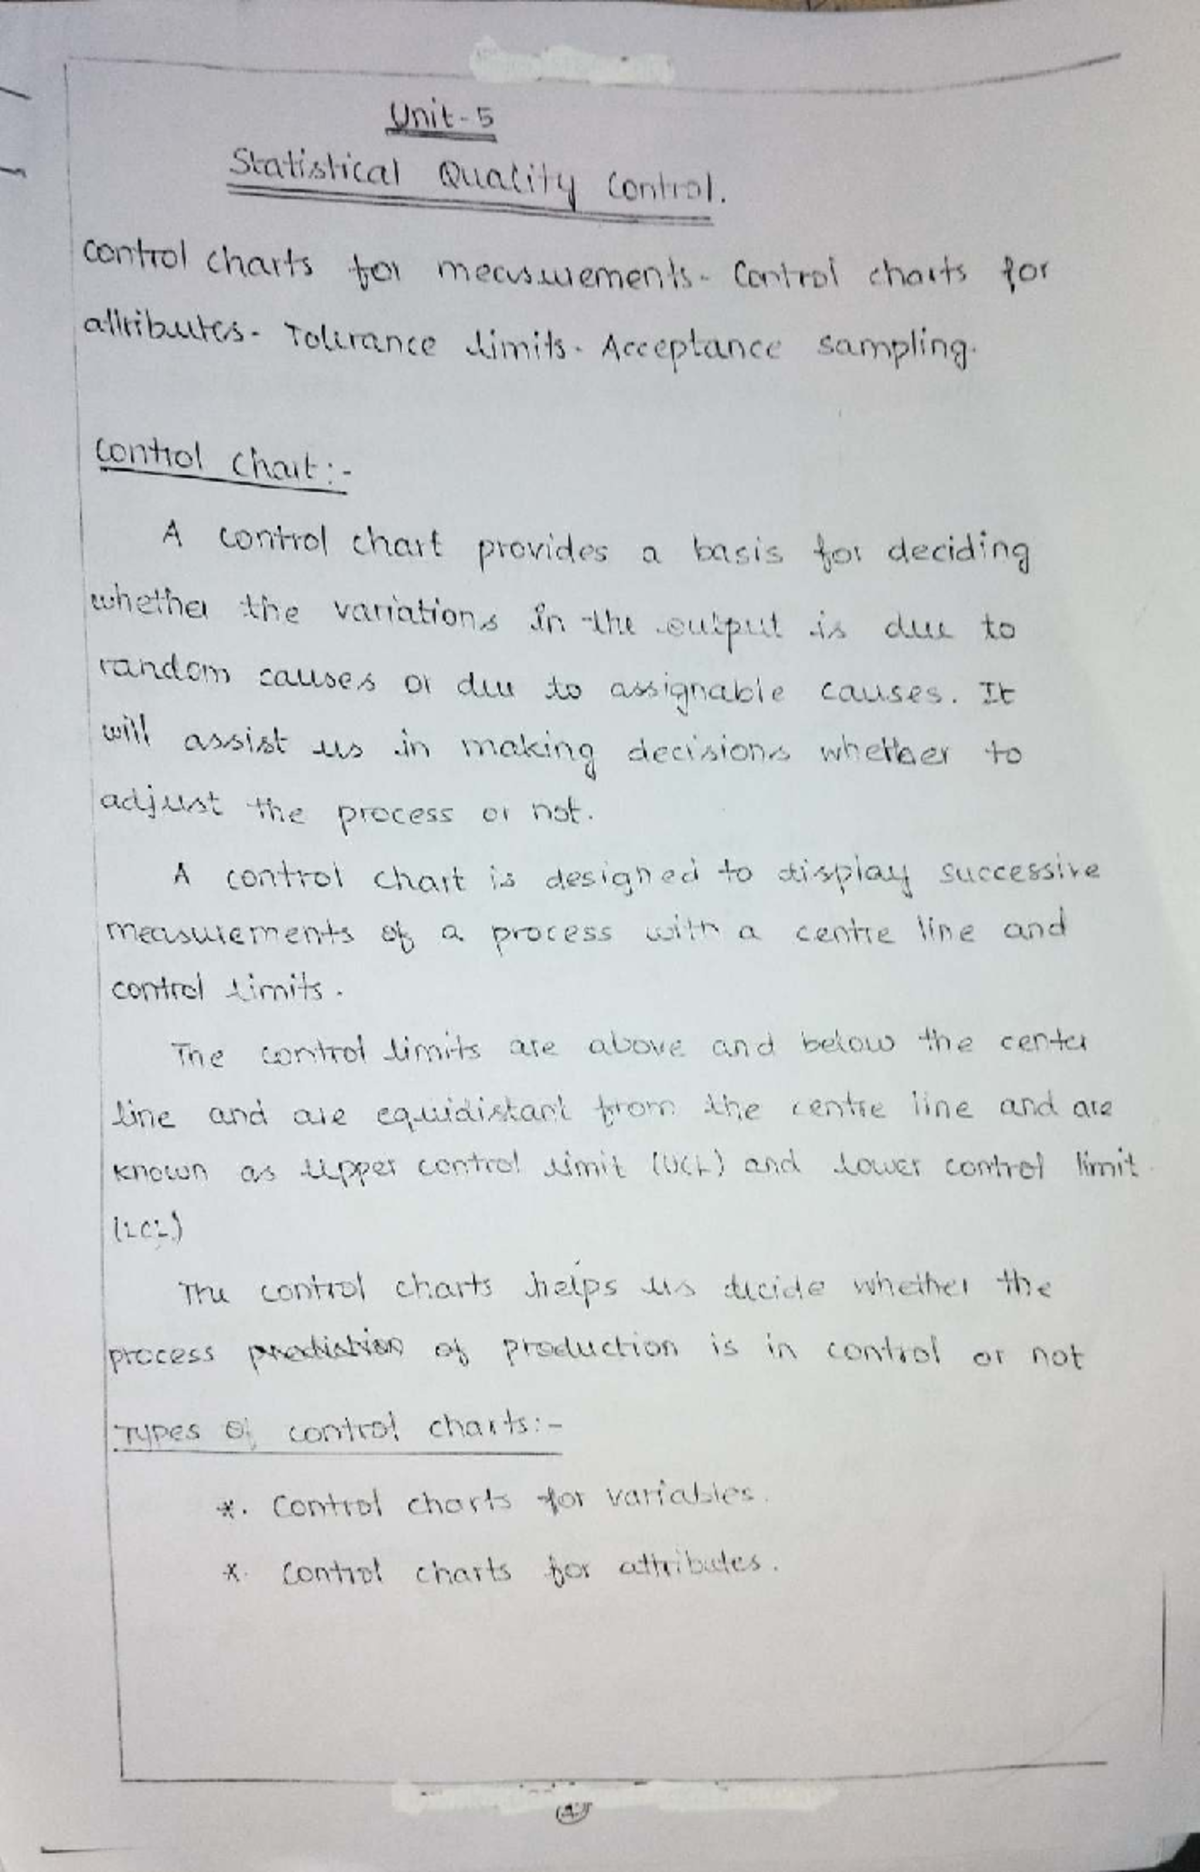 Unit-5
Statistical Quality Control.
control charts for measurements- Control charts for
attributes- Tolerance limits- Acceptance sampling.
Control chart:-
A control chart provides a basis for deciding
whether the variations in the output is due to
random causes or due to assignable causes. It
will assist us in making decisions whether to
adjust the process or not.
A control chart is designed to display successive
measurements of a process with a centre line and
control limits.
The control limits are above and below the center
line and are equidistant from the centre line and are
known as upper control limit (UCL) and lower control limit
(LCL)
The control charts helps us decide whether the
process of production is in control or not
Types of control charts:-
*. Control charts for variables.
*. Control charts for attributes.